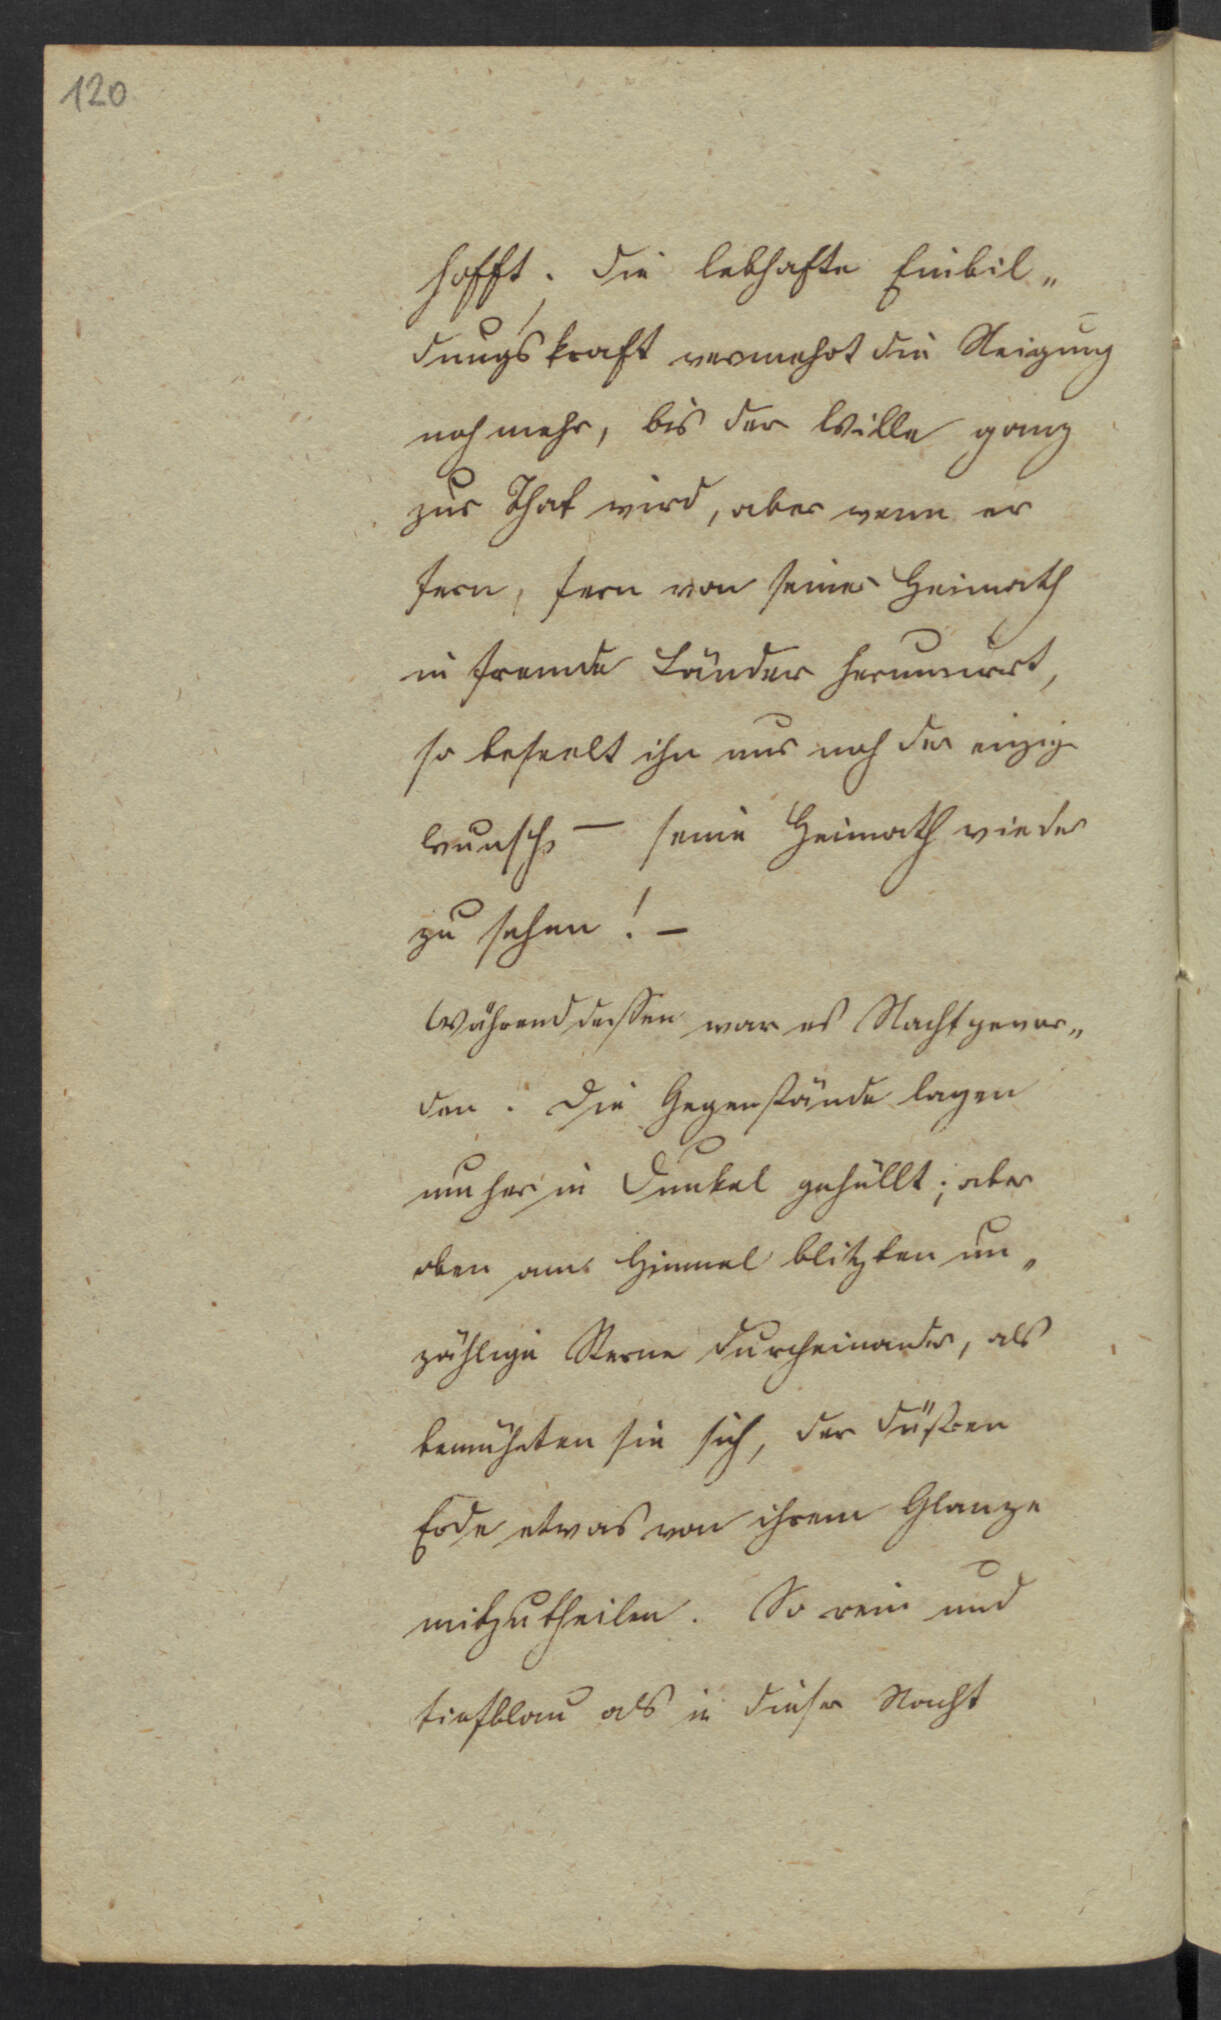 120
hofft. Die lebhafte Einbil„
dungskraft vermehrt die Neigung
noch mehr, bis der Wille ganz
zur That wird, aber wenn er
fern, fern von seiner Heimath
in fremde Länder herumirrt,
so beseelt ihn nur noch der einzige
Wunsch – seine Heimath wieder
zu sehen! –
Während dessen war es Nacht gewor„
den. Die Gegenstände lagen
umher in Dunkel gehüllt; aber
oben am Himmel blitzten un„
zählige Sterne durcheinander, als
bemühten sie sich, der düstren
Erde etwas von ihrem Glanze
mitzutheilen. So rein und
tiefblau als in dieser Nacht